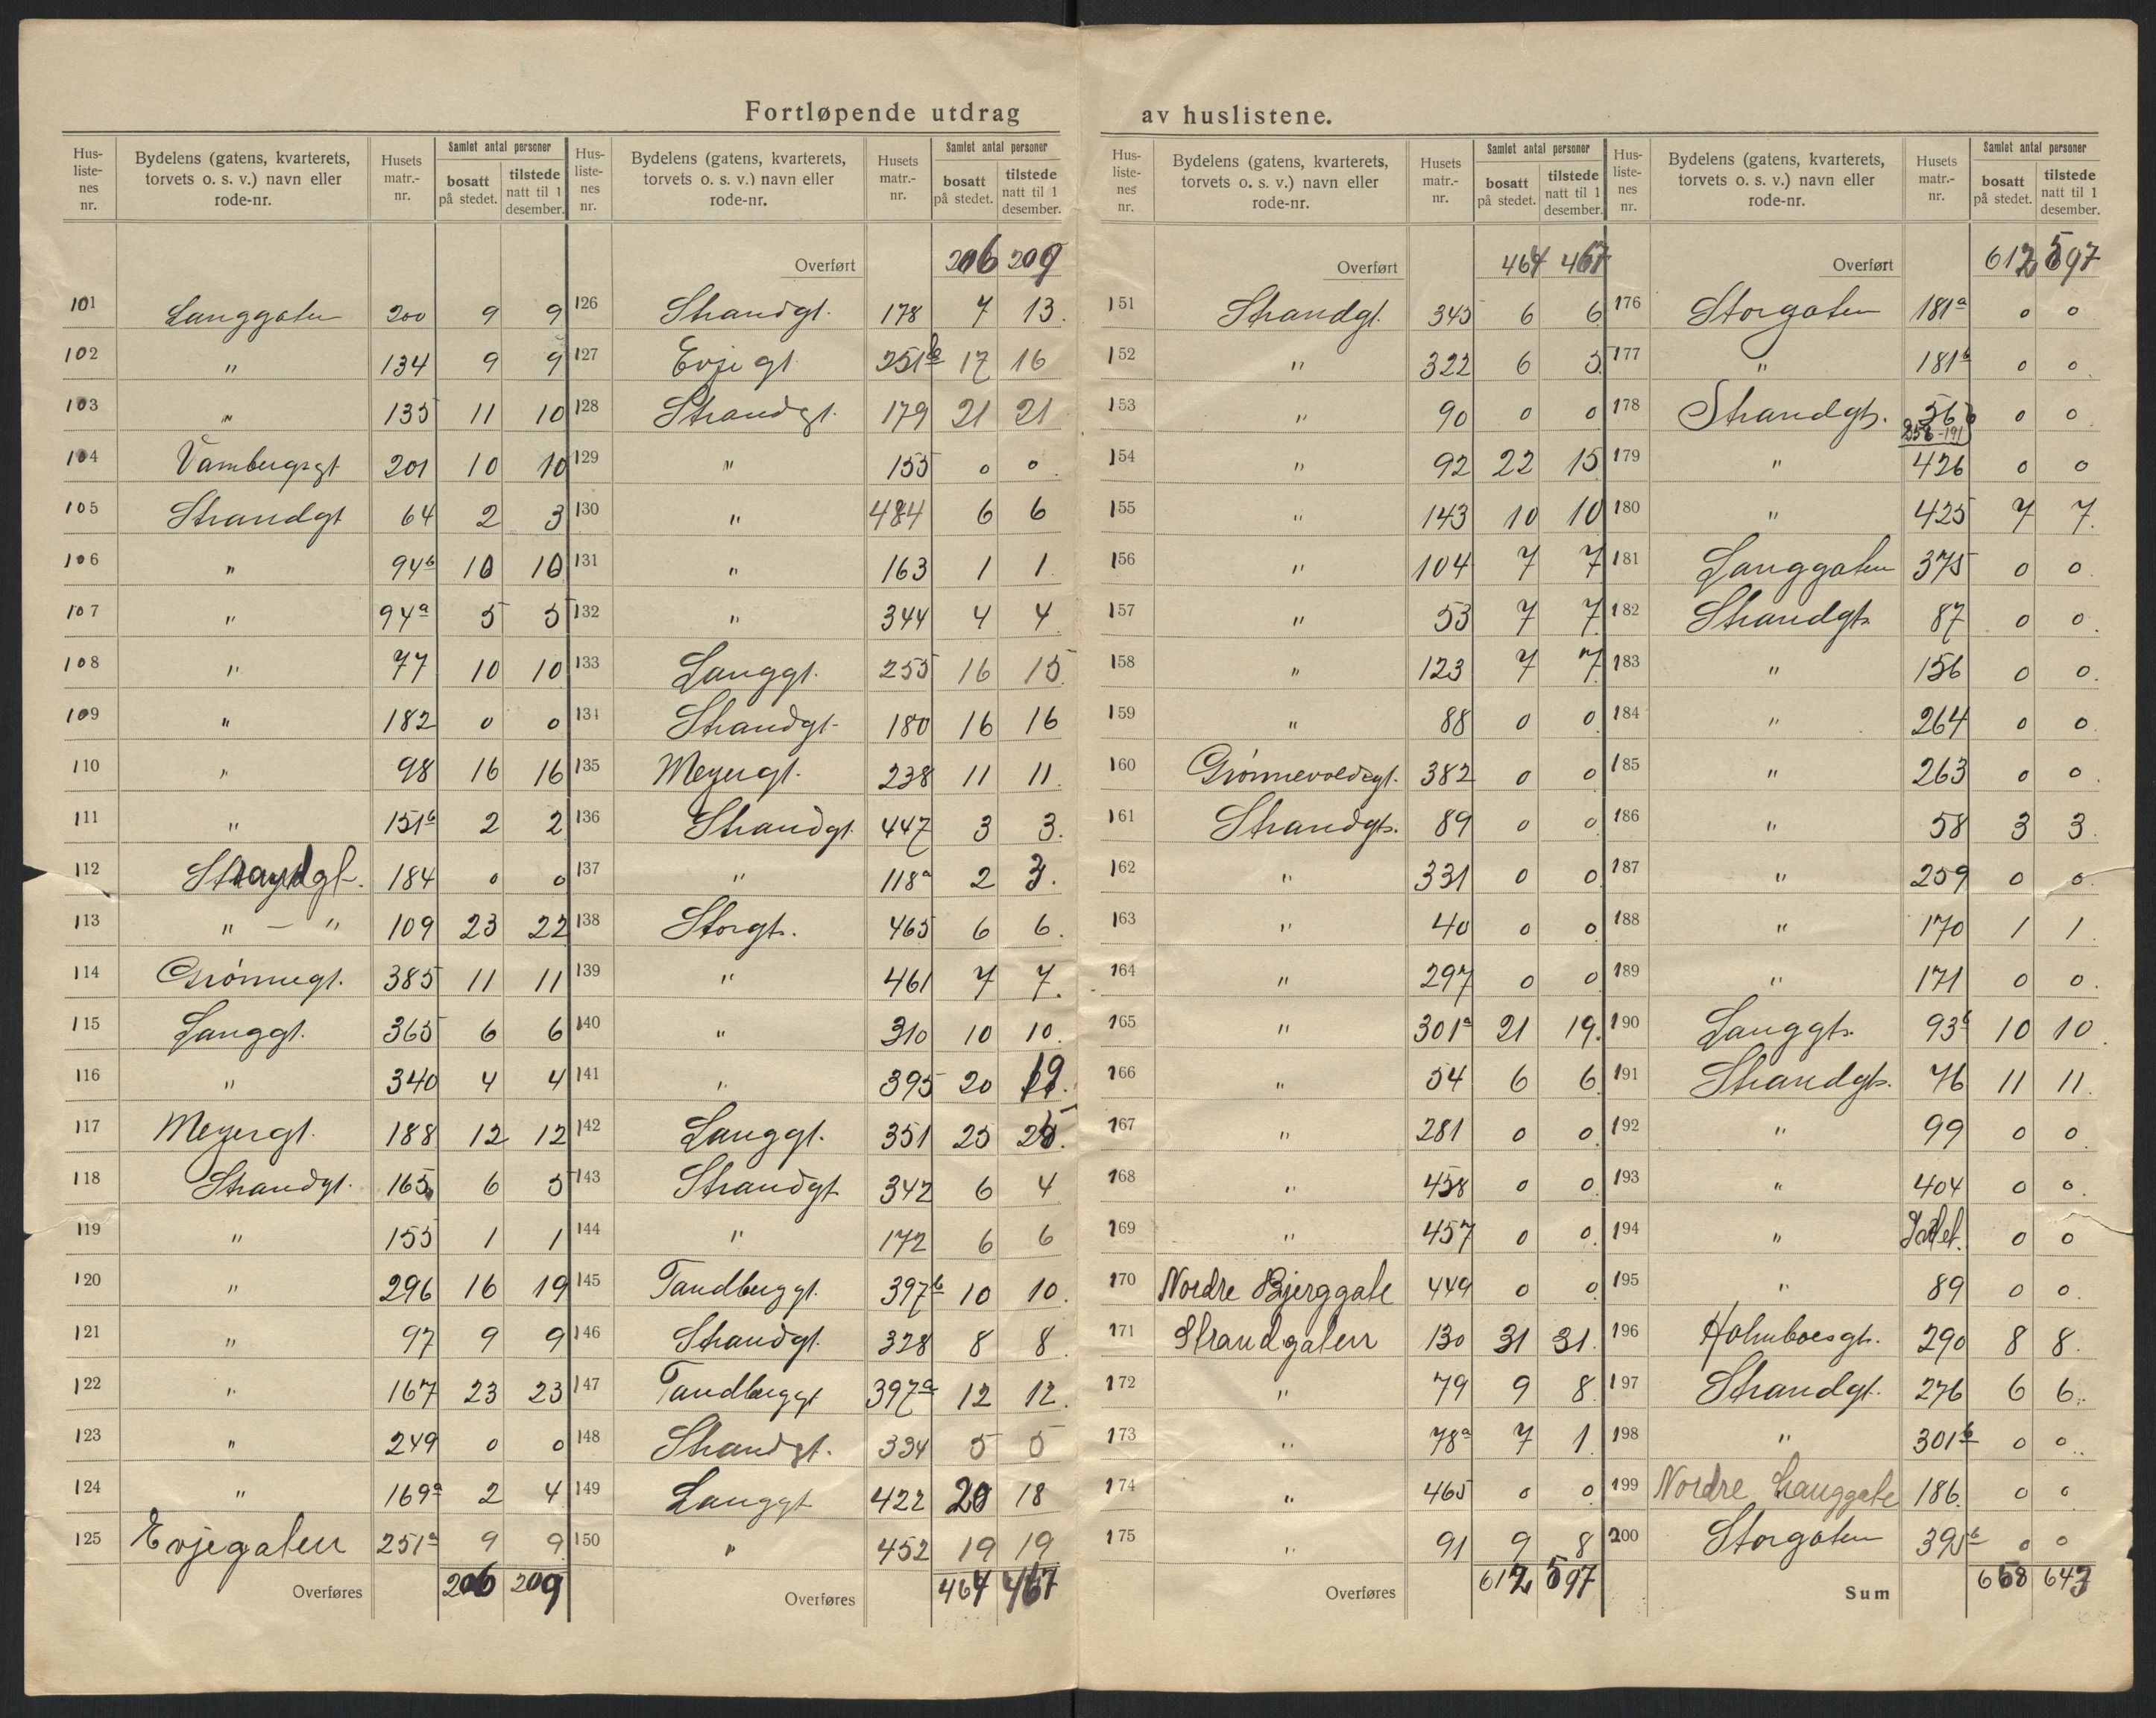 Fortløpende utdrag av huslistene.
Hus-listenes nr. | Bydelens (gatens, kvarterets, torvets o. s. v.) navn eller rode-nr. | Husets matr.-nr. | Samlet antal personer | bosatt på stedet. | tilstede natt til 1 desember.
101 Langgaten 200 9 9
102 " 134 9 9
103 " 135 11 10
104 Vambergsgt 201 10 10
105 Strandgt 64 2 3
106 " 94b 10 10
107 " 94a 5 5
108 " 77 10 10
109 " 182 0 0
110 " 98 16 16
111 " 151b 2 2
112 Strandgt. 184 0 0
113 " — " 109 23 22
114 Grønnegt. 385 11 11
115 Langgt. 365 6 6
116 " 340 4 4
117 Meyergt. 188 12 12
118 Strandgt. 165 6 5
119 " 155 1 1
120 " 296 16 19
121 " 97 9 9
122 " 167 23 23
123 " 249 0 0
124 " 169a 2 4
125 Evjegaten 251a 9 9
Overføres 206 209
Hus-listenes nr. | Bydelens (gatens, kvarterets, torvets o. s. v.) navn eller rode-nr. | Husets matr.-nr. | Samlet antal personer | bosatt på stedet. | tilstede natt til 1 desember.
Overført 206 209
126 Strandgt. 178 7 13.
127 Evjegt 251b 17 16
128 Strandgt. 179 21 21
129 " 155 0 0.
130 " 484 6 6
131 " 163 1 1.
132 " 344 4 4
133 Langgt. 255 16 15.
134 Strandgt. 180 16 16
135 Meyergt. 238 11 11.
136 Strandgt. 447 3 3.
137 " 118a 2 3.
138 Storgt. 465 6 6.
139 " 461 7 7.
140 " 310 10 10.
141 " 395 20 19.
142 Langgt. 351 25 25.
143 Strandgt 342 6 4
144 " 172 6 6
145 Tandberggt. 397b 10 10.
146 Strandgt. 328 8 8.
147 Tandberggt 397a 12 12.
148 Strandgt. 334 5 5
149 Langgt 422 20 18
150 " 452 19 19
Overføres 464 467
Hus-listenes nr. | Bydelens (gatens, kvarterets, torvets o. s. v.) navn eller rode-nr. | Husets matr.-nr. | Samlet antal personer | bosatt på stedet. | tilstede natt til 1 desember.
Overført 464 467
151 Strandgt. 345 6 6
152 " 322 6 5.
153 " 90 0 0
154 " 92 22 15
155 " 143 10 10
156 " 104 7 7
157 " 53 7 7.
158 " 123 7 7.
159 " 88 0 0.
160 Grønnevoldsgt. 382 0 0
161 Strandgt. 89 0 0
162 " 331 0 0
163 " 40 0 0
164 " 297 0 0
165 " 301a 21 19.
166 " 54 6 6
167 " 281 0 0.
168 " 458 0 0.
169 " 457 0 0.
170 Nordre Bjerggate 449 0 0
171 Strandgaten 130 31 31.
172 " 79 9 8
173 " 78a 7 1.
174 " 465 0 0.
175 " 91 9 8
Overføres 612 597
Hus-listenes nr. | Bydelens (gatens, kvarterets, torvets o. s. v.) navn eller rode-nr. | Husets matr.-nr. | Samlet antal personer | bosatt på stedet. | tilstede natt til 1 desember.
Overført 612 597
176 Storgaten 181a 0 0
177 " 181b 0 0.
178 Strandgt. 56b 0 0
179 " 426 0 0
180 " 425 7 7.
181 Langgaten 375 0 0.
182 Strandgt. 87 0 0.
183 " 156 0 0.
184 " 264 0 0.
185 " 263 0 0.
186 " 58 3 3.
187 " 259 0 0.
188 " 170 1 1.
189 " 171 0 0.
190 Langgt. 93b 10 10.
191 Strandgt. 76 11 11.
192 " 99 0 0.
193 " 404 0 0.
194 " 0 0
195 " 89 0 0.
196 Holmboesgt. 290 8 8.
197 Strandgt. 276 6 6.
198 " 301b 0 0.
199 Nordre Langgate 186. 0 0.
200 Storgaten 395b 0 0
Sum 658 643